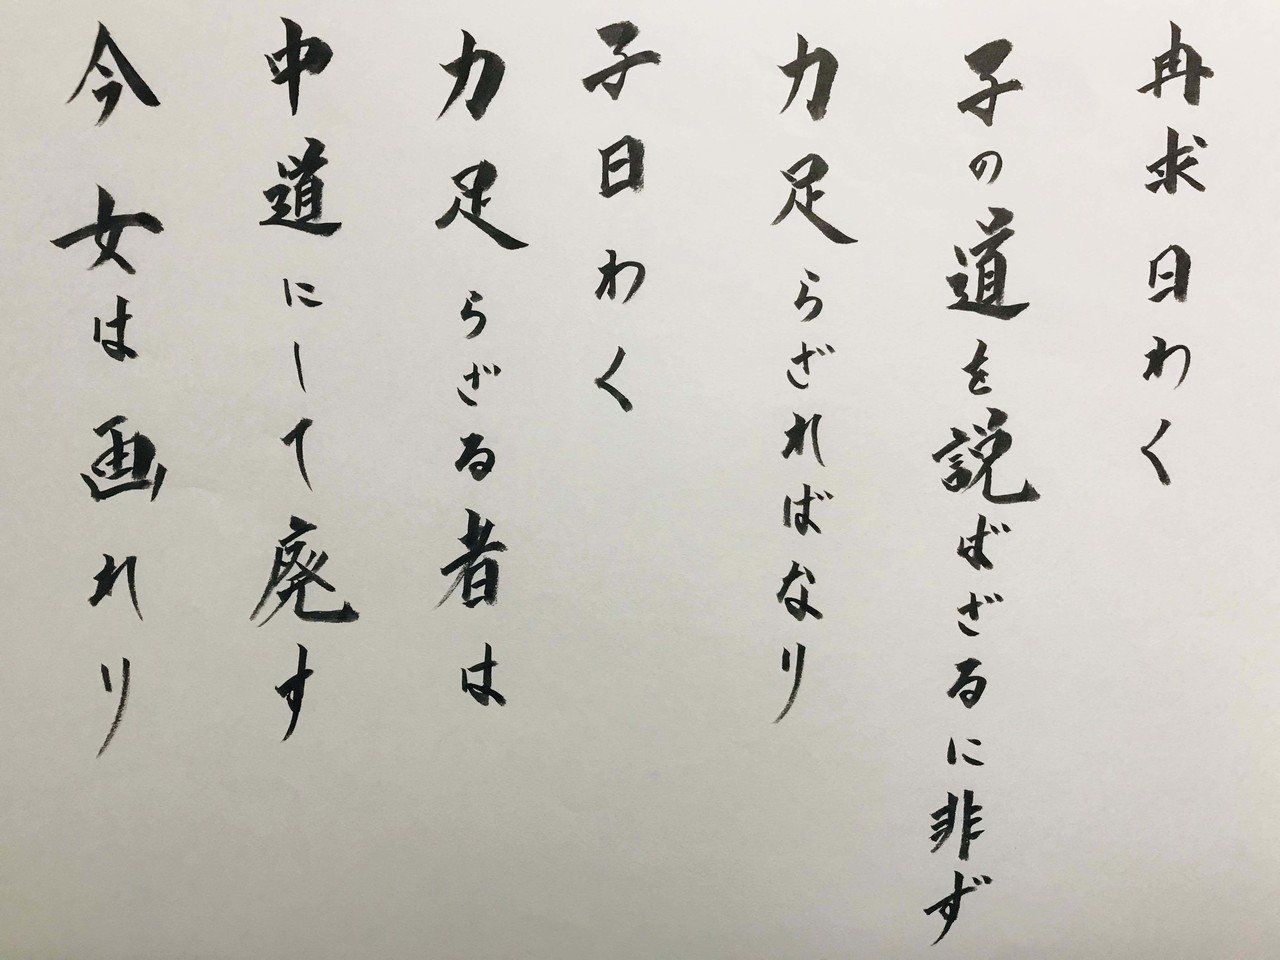 冉求曰わく
子の道を説ばざるに非ず
力足らざればなり
子曰わく
力足らざる者は
中道にして廃す
今女は画れり